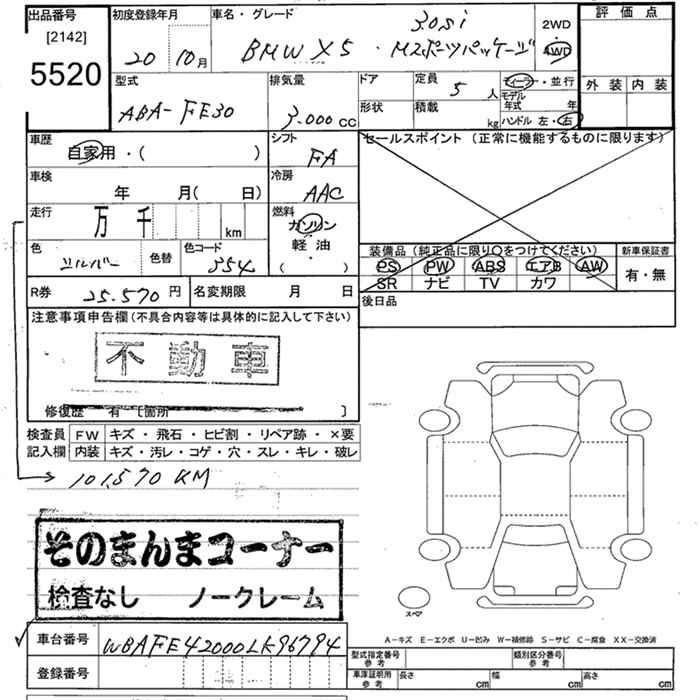 出品番号 初度登録年月 車名・グレード 3.0si 2WD 評価点
[2142] 20 年 10月 BMW X5・Mスポーツパッケージ 4WD
5520 外装 内装
型式 排気量 ドア 定員 5 人 ディーラー・並行
ABA-FE30 3.000 CC 形状 積載 kg モデル年式 年
ハンドル 左・右
車歴 シフト セールスポイント (正常に機能するものに限ります)
自家用・( ) FA
車検 冷房
年 月(日) AAC
走行 万 千 km 燃料
ガソリン
軽油
( )
色 シルバー 色替 色コード 354
装備品(純正品に限り〇をつけてください) 新車保証書
PS PW ABS エアB AW 有・無
SR ナビ TV カワ
R券 25.570 円 名変期限 月 日 後日品
注意事項申告欄(不具合内容等は具体的に記入して下さい)
不動車
修復歴 有 [箇所 ]
検査員 FW キズ・飛石・ヒビ割・リペア跡・×要
記入欄 内装 キズ・汚レ・コゲ・穴・スレ・キレ・破レ
101,570 KM
そのまんまコーナー
検査なし ノークレーム
スペア
A-キズ E-エクボ U-凹み W-補修跡 S-サビ C-腐食 XX-交換済
車台番号 WBAFE42000LK96794
型式指定番号 参考 類別区分番号 参考
登録番号
車庫証明用 参考 長さ cm 幅 cm 高さ cm